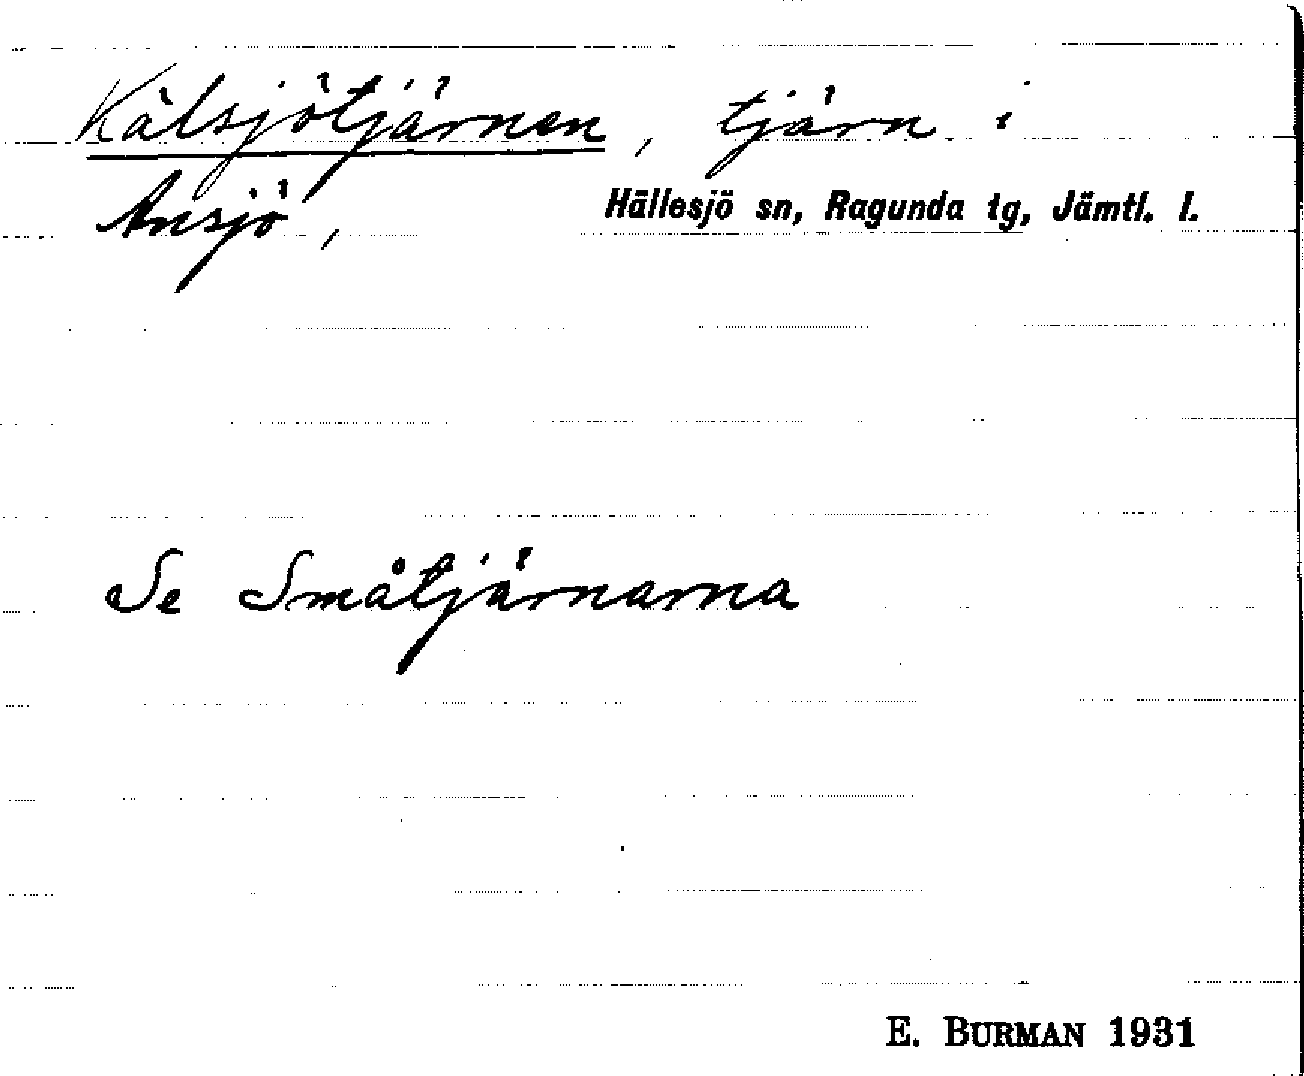 Kälsjötjärnen, tjärn i
Ansjö, Hällesjö sn, Ragunda tg, Jämtl. l.
Se Småtjärnarna
E. BURMAN 1931